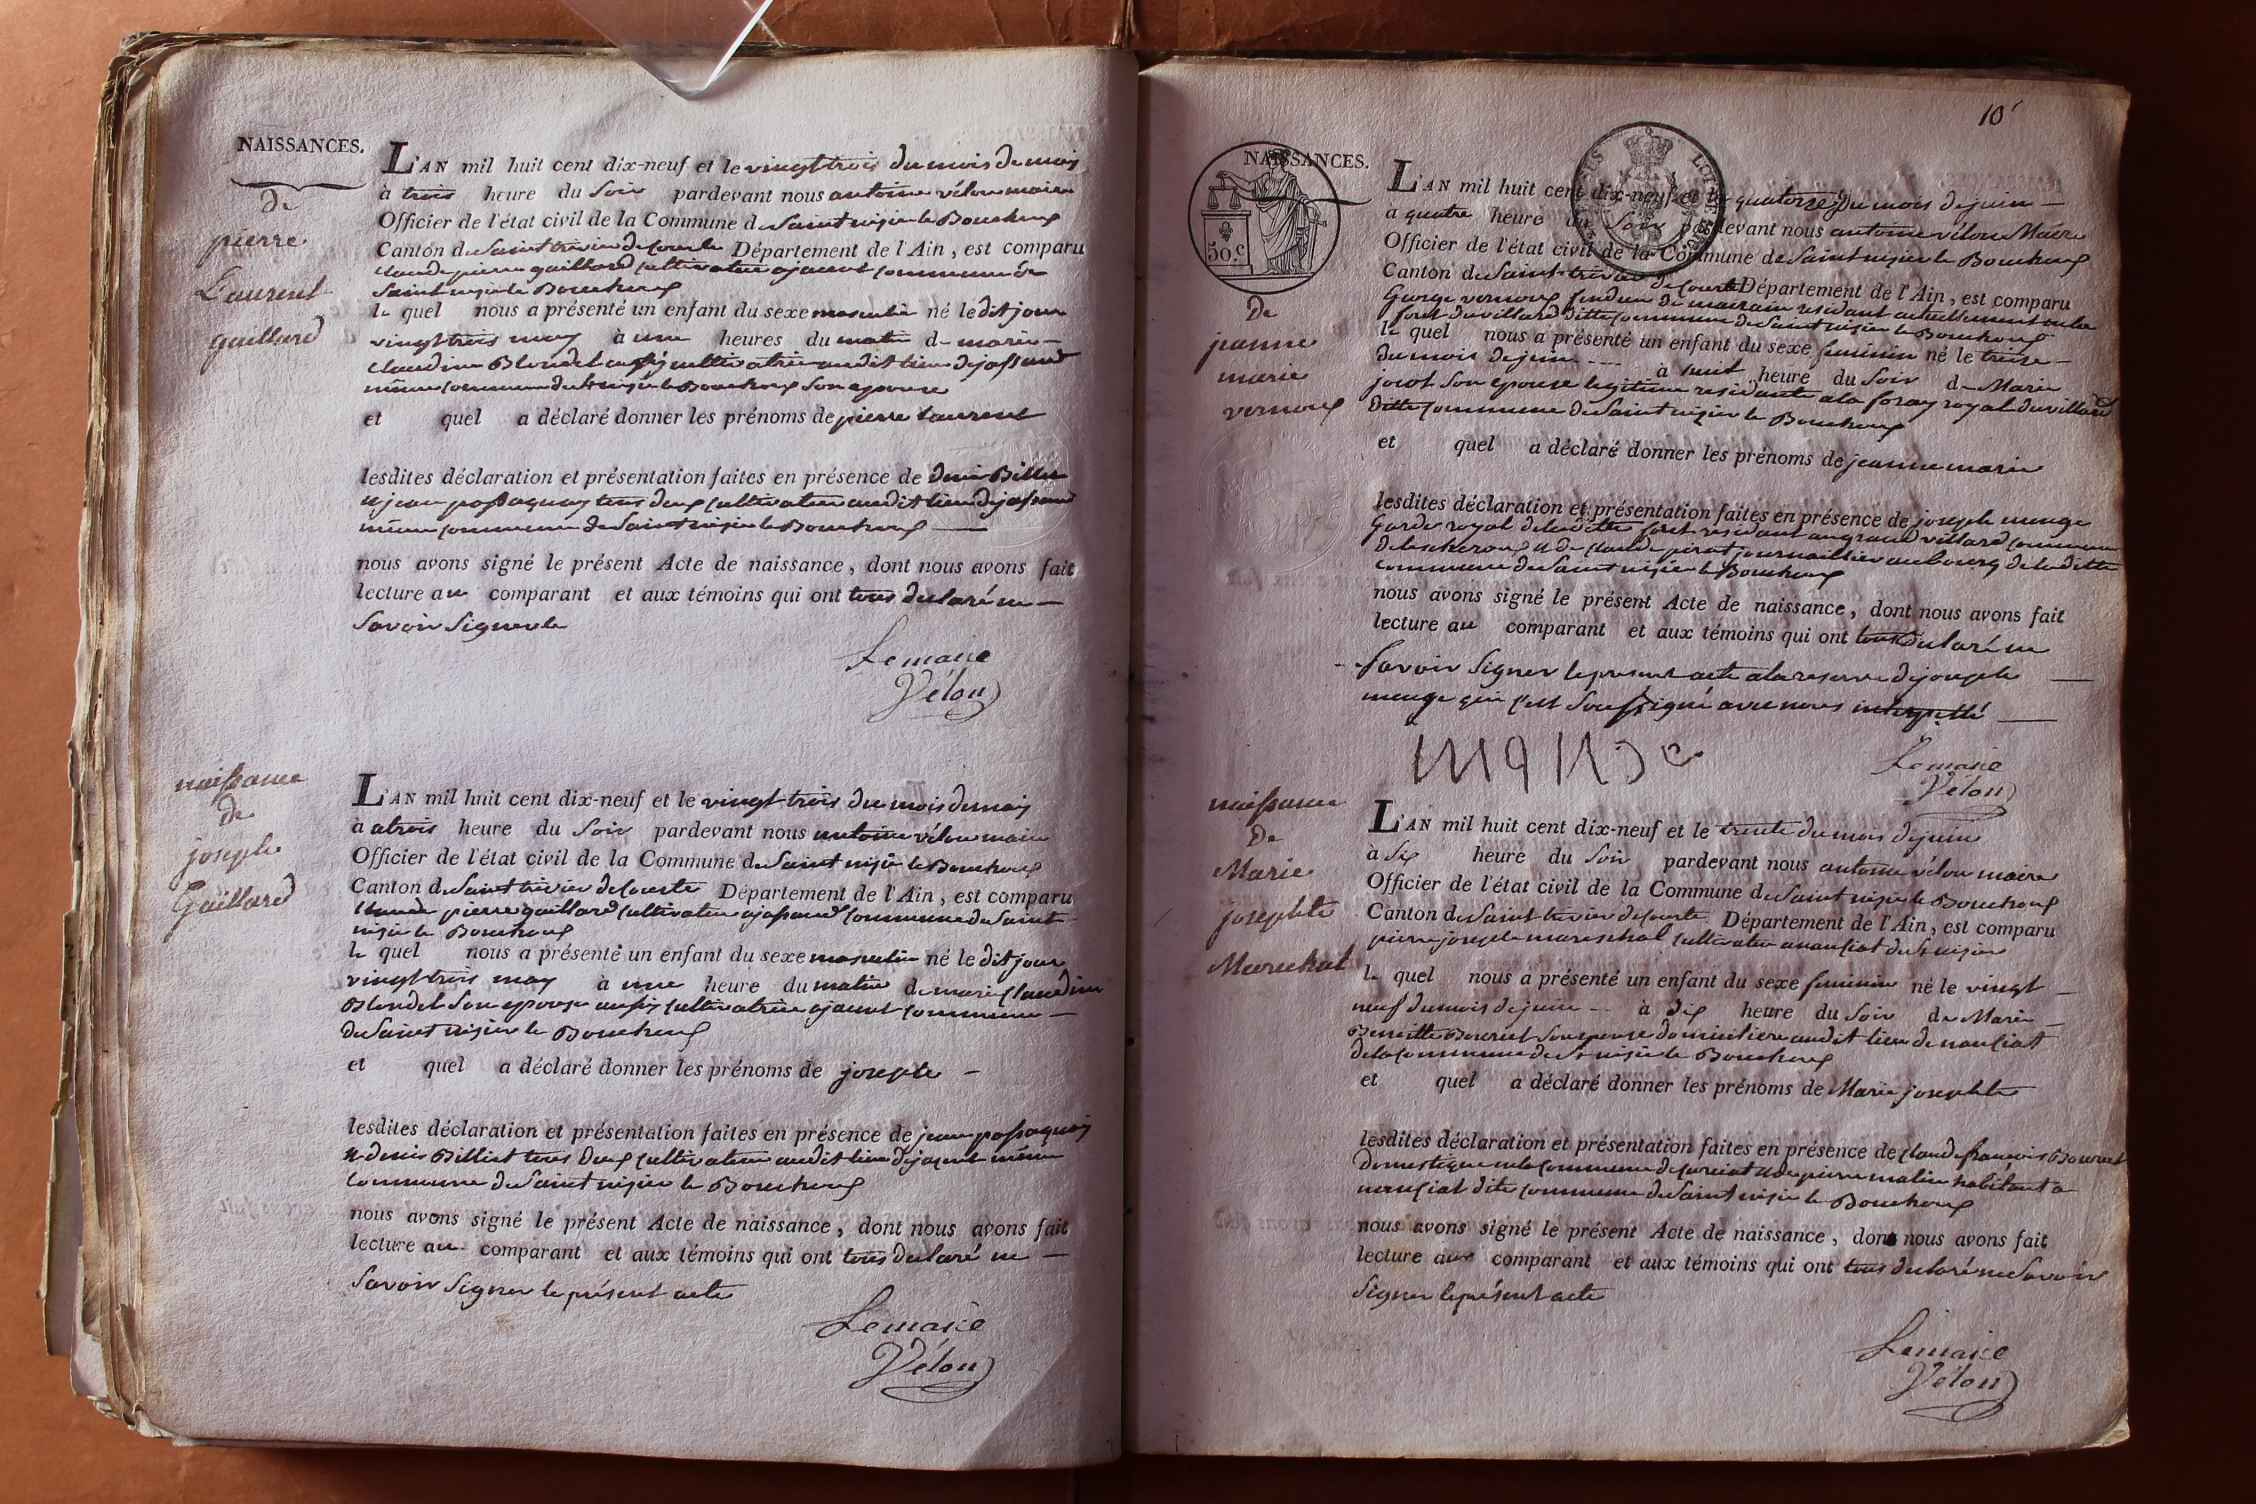 NAISSANCES.
de
pierre
Laurent
gaillard
L'AN mil huit cent dix-neuf et le vingt trois du mois de may
à trois heure du soir pardevant nous antoine vélon maire
Officier de l'état civil de la Commune de Saint nizier le Bouchoux
Canton de Saint trivier de Courte Département de l'Ain, est comparu
Claude pierre gaillard cultivateur a jacent commune de
Saint nizier le Bouchoux
le quel nous a présenté un enfant du sexe masculin né le dit jour
vingt trois may à une heures du matin de marie
claudine Blondel aussy cultivatrice au dit lieu de jassand
même commune de St nizier le Bouchoux son epouse
et quel a déclaré donner les prénoms de pierre laurent
lesdites déclaration et présentation faites en présence de denis Billiet
et jean passaquay tous deux cultivateur au dit lieu de jassand
même commune de Saint nizier le Bouchoux
nous avons signé le présent Acte de naissance, dont nous avons fait
lecture au comparant et aux témoins qui ont tous declaré ne
Savoir Signer le
Le maire
Vélon
naissance
de
josephe
Gaillard
L'AN mil huit cent dix-neuf et le vingt trois du mois de may
à atrois heure du Soir pardevant nous antoine vélon maire
Officier de l'état civil de la Commune de Saint nizier le Bouchoux
Canton de Saint trivier de Courte Département de l'Ain, est comparu
Claude pierre gaillard cultivateur a jassand commune de Saint
nizier le Bouchoux
le quel nous a présenté un enfant du sexe masculin né le dit jour
vingt trois may à une heure du matin de marie Claudine
Blondel Son epouse aussy cultivatrice a jacent commune
de Saint nizier le Bouchoux
et quel a déclaré donner les prénoms de josephe
lesdites déclaration et présentation faites en présence de jean passaquay
et denis Billiet tous deux cultivateur au dit lieu de jacent même
Commune de Saint nizier le Bouchoux
nous avons signé le présent Acte de naissance, dont nous avons fait
lecture au comparant et aux témoins qui ont tous declaré ne
Savoir Signer le présent acte
Le maire
Vélon
10
NAISSANCES.
50 c
De
jeanne
marie
vernoux
L'AN mil huit cent dix-neuf et le quatorze du mois de juin
a quatre heure du Soir pardevant nous antoine vélon Maire
Officier de l'état civil de la Commune de Saint nizier le Bouchoux
Canton de Saint trivier de Courte Département de l'Ain, est comparu
George vernoux fendeur de mairain residant actuellement en la
foret du villard ditte commune de Saint nizier le Bouchoux
le quel nous a présenté un enfant du sexe feminin né le treize
du mois de juin à huit heure du Soir de Marie
jocot Son epouse legitime residante a la foray royal du villard
Ditte commune de Saint nizier le Bouchoux
et quel a déclaré donner les prénoms de jeanne marie
lesdites déclaration et présentation faites en présence de josephe menge
Garde royal de la ditte foret residant au grand villard commune
de lescheroux et de Claude pirat journaillier au bourg de la ditte
commune de Saint nizier le Bouchoux
nous avons signé le présent Acte de naissance, dont nous avons fait
lecture au comparant et aux témoins qui ont tous declaré ne
Savoir Signer le present acte a la reserve de josephe
menge qui c'est Soussigné avec nous
Le maire
Vélon
naissance
De
Marie
josephte
Marechal
L'AN mil huit cent dix-neuf et le trente du mois de juin
à Six heure du Soir pardevant nous antoine vélon maire
Officier de l'état civil de la Commune de Saint nizier le Bouchoux
Canton de Saint trivier de Courte Département de l'Ain, est comparu
pierre josephe mareschal cultivateur a nanciat de St nizier
le quel nous a présenté un enfant du sexe feminin né le vingt
neuf du mois de juin à dix heure du Soir de Marie
Bouvret Son epouse domiciliere au dit lieu de nanciat
de la commune de St nizier le Bouchoux
et quel a déclaré donner les prénoms de Marie josephte
lesdites déclaration et présentation faites en présence de Claude francois Bouvret
Domestique en la commune de curciat et de pierre matin habitant a
nanciat dite commune de Saint nizier le Bouchoux
nous avons signé le présent Acte de naissance, dont nous avons fait
lecture aux comparant et aux témoins qui ont tous declaré ne Savoir
Signer le présent acte
Le maire
Vélon